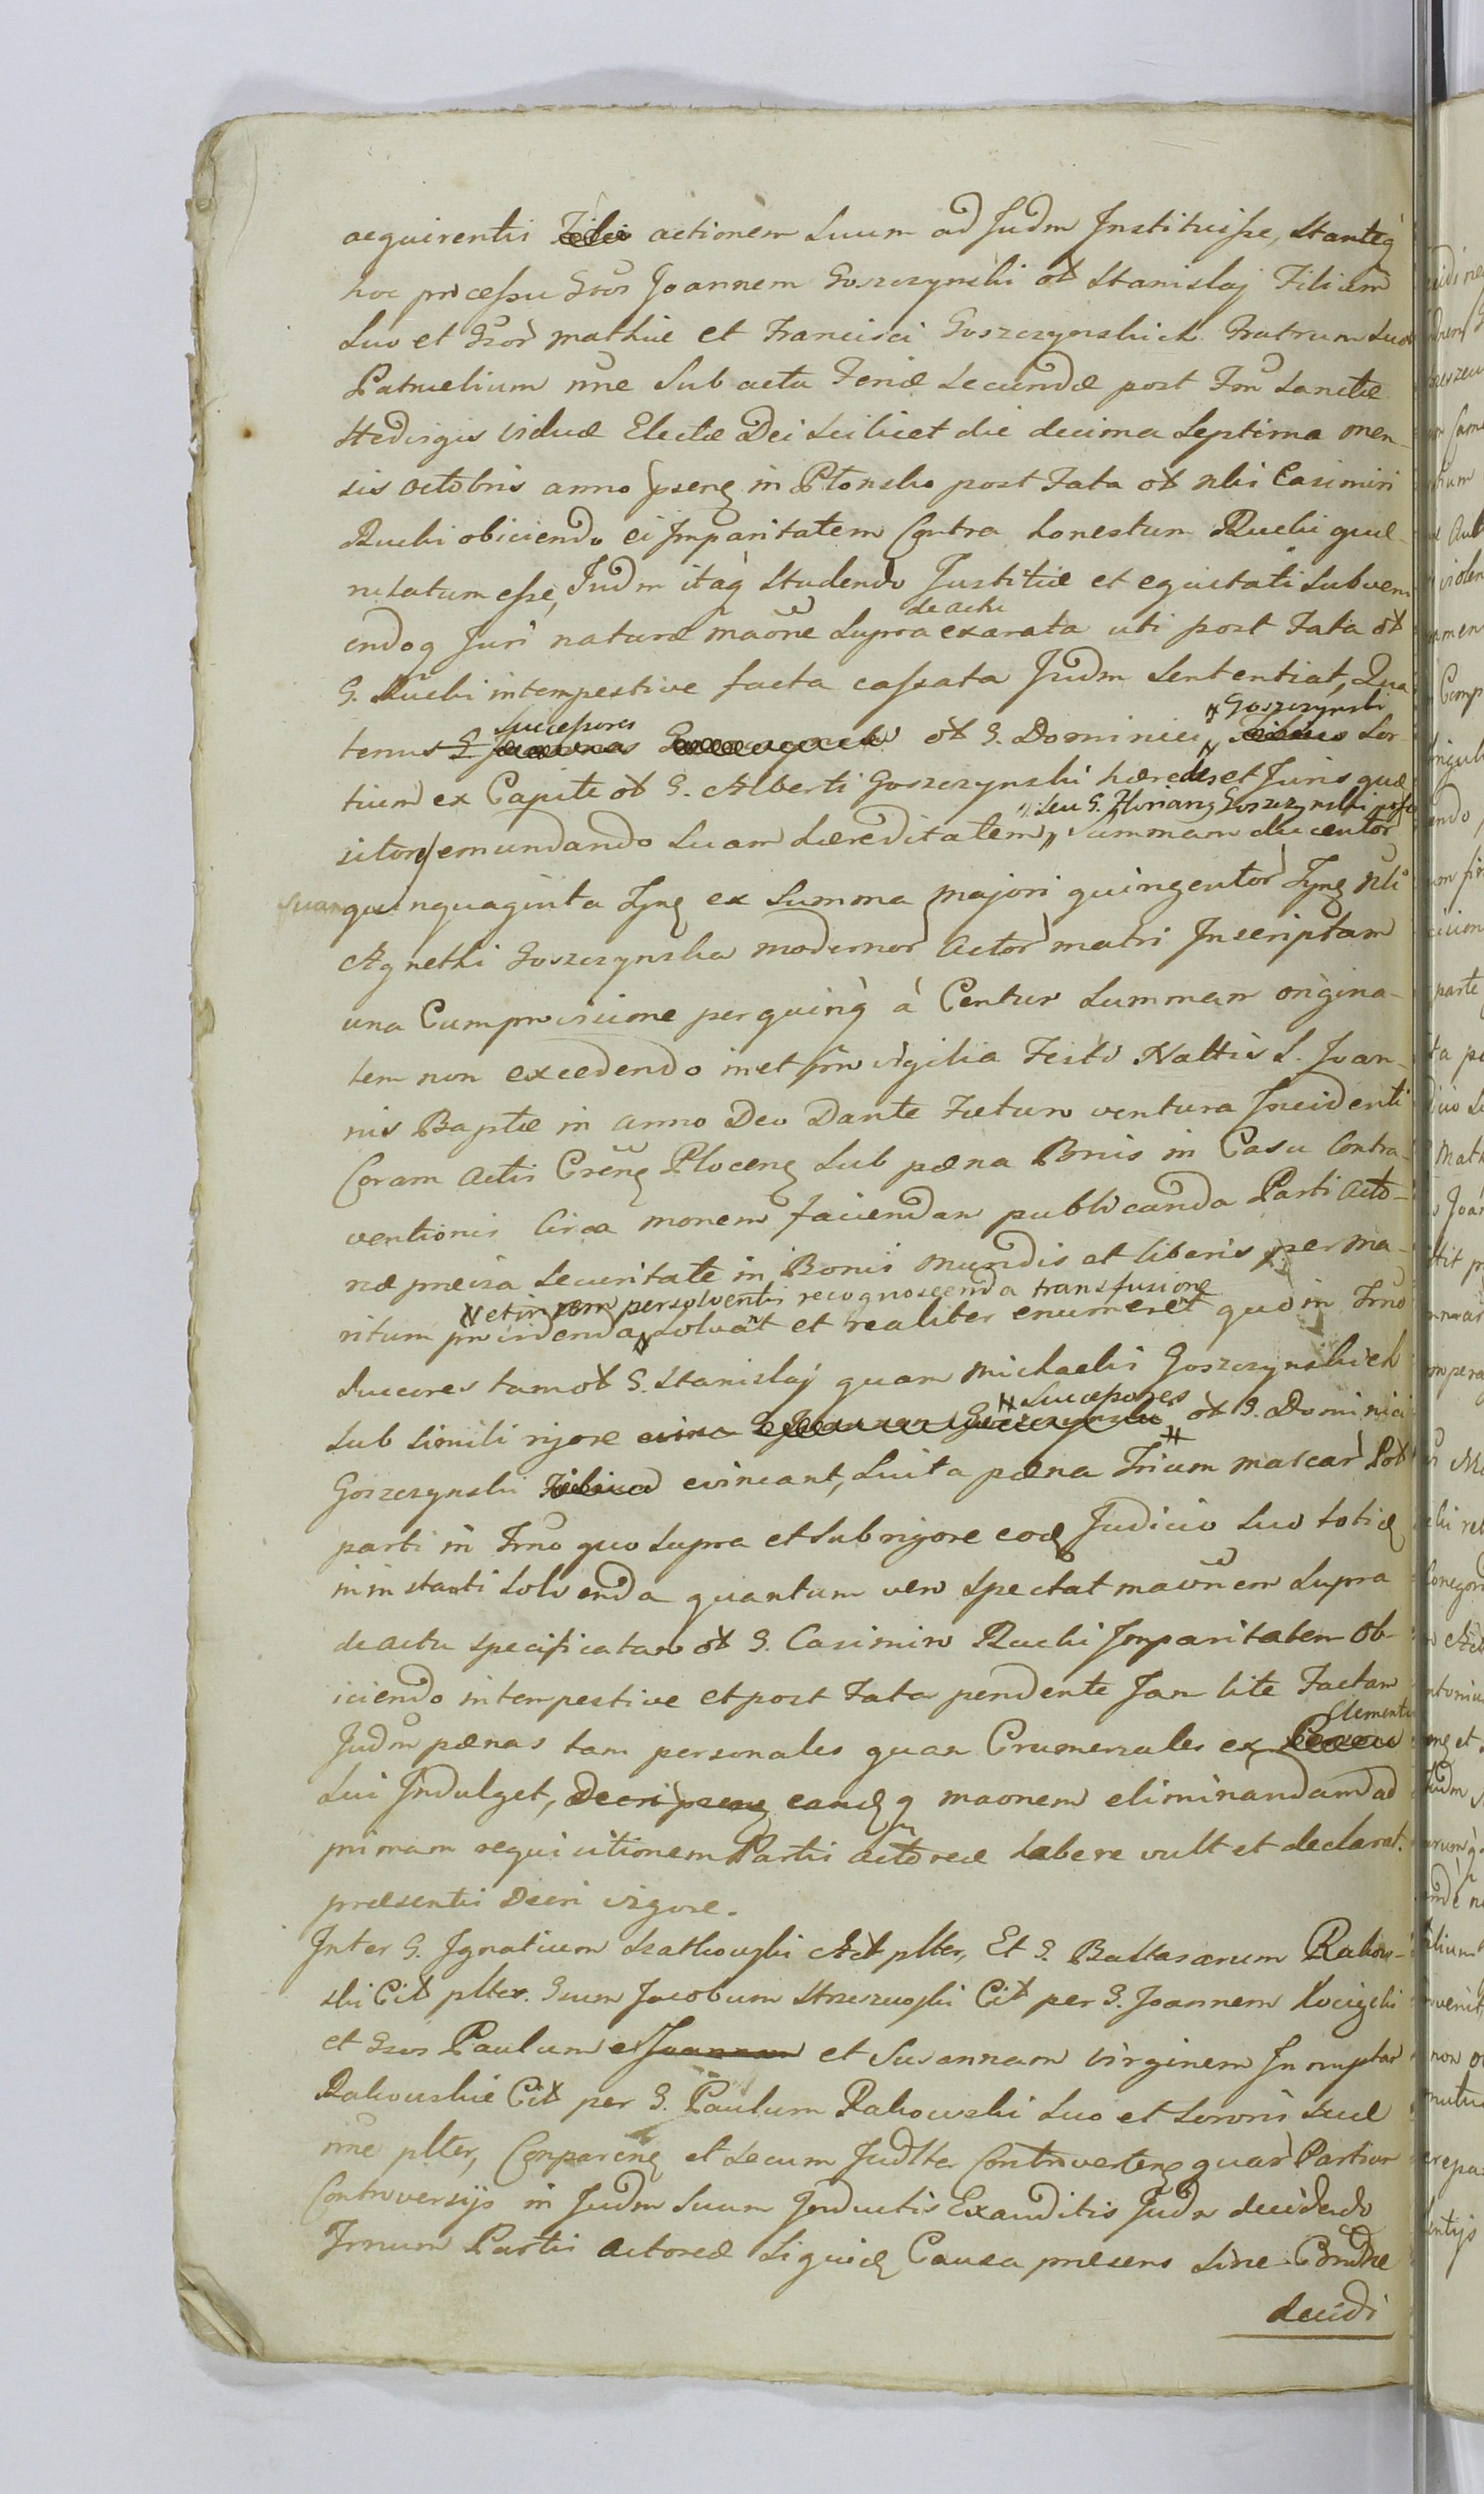 acquirentis actionem Suum ad Judm Instituisse, Stanteq
hoc processu Gsos Joannem Goszczynski ol Stanislaj Filium
Suo et Gsor Mathiae et Francisci Goszczynskich Fratrum Suor
Patruelium nne Sub actu Feriae Secundae post Fm Sanctae
Hedvigis Viduae Electae Dei Scilicet die decima Septima men-
sis octobris anno psenq in Płonsko post Fata ol nbi Casimiri
Rucki obiciendo ei Imparitatem Contra honestum Rucki que-
rulatum esse, Judm itaq Studendo Justitiae et equitati Subveni
endoq Juri naturae maone Supra de actu exarata uti post Fata ol
G. Rucki intempestive facta cassata Judm Sententiat, Qua
tenus Successores ol G. Dominici Goszczynski Sor-
tium ex Capite ol G. Alberti Goszczynski haeredes et Juris quae
sitores emundando Suam haereditatem " Seu G. Floriani Goszczynski " Summam ducentor
Suam quinquaginta Fynq ex Summa majori quingentor Fynq nbi
Agnethi Goszczynska modernor Actor matri Inscriptam
una Cum provisione per quinq à Centur Summam origina-
lem non excedendo in et pro vigilia Festi Nattis S. Joan-
nis Baptae in anno Deo Dante Futuro ventura Incidenti
Coram actis Crenq Plocenq Sub paena Bonis in Casu Contra-
ventionis Circa monem faciendam publicanda Parti Acto-
reae praevia Securitate in Bonis mundis et liberis per ma-
ritum providenda et in rem persolventis recognoscenda transfusione Solvat et realiter enumeret quo in Frno
Succores tam ol G. Stanislaj quam Michaelis Goszczynskich
Sub Simili rigore Successores ol G. Dominici
Goszczynski evincant, Luita paena Trium marcar Pol
parti in Frno quo Supra et Sub rigore eodq Judicio Suo totidq
in instanti Solvenda quantum vero Spectat maonem Supra
de actu Specificatam ol G. Casimiro Rucki Imparitatem Ob-
iciendo intempestive et post Fata pendente Jam lite Factam
Judm paenas tam personales quam Crumenales ex Clementia
Sui Indulget, eandq q maonem eliminandam ad
primam requisitionem Partis actoreae habere vult et declarat.
praesentis Decri vigore.
Inter G. Ignatium Szatkowski Act plter, Et G. Baltasarum Rakow-
ski Cit plter. Gsum Jacobum Strzeszewski Cit per G. Joannem Kocięcki
et Gsos Paulum et Susannam Virginem Innuptam
Rakowskie Cit per G. Paulum Rakowski Suo et Sororis Suae
nne plter, Comparenq et Secum Judlter Controvertenq quar Partium
Controversijs in Judm Suum Inductis Exauditis Judm decidendo
Frnum Partis actoreae Siquidq Causa praesens Sine Condne
decidi